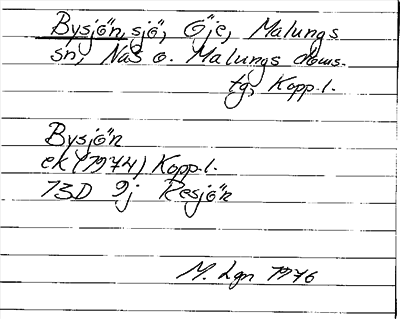 Bysjön, sjö, Öje, Malungs
sn, Nås o. Malungs doms.
tg, Kopp.l.
Bysjön
ek (1974) Kopp.l.
13D 9j Resjön
M. Lgn 1976